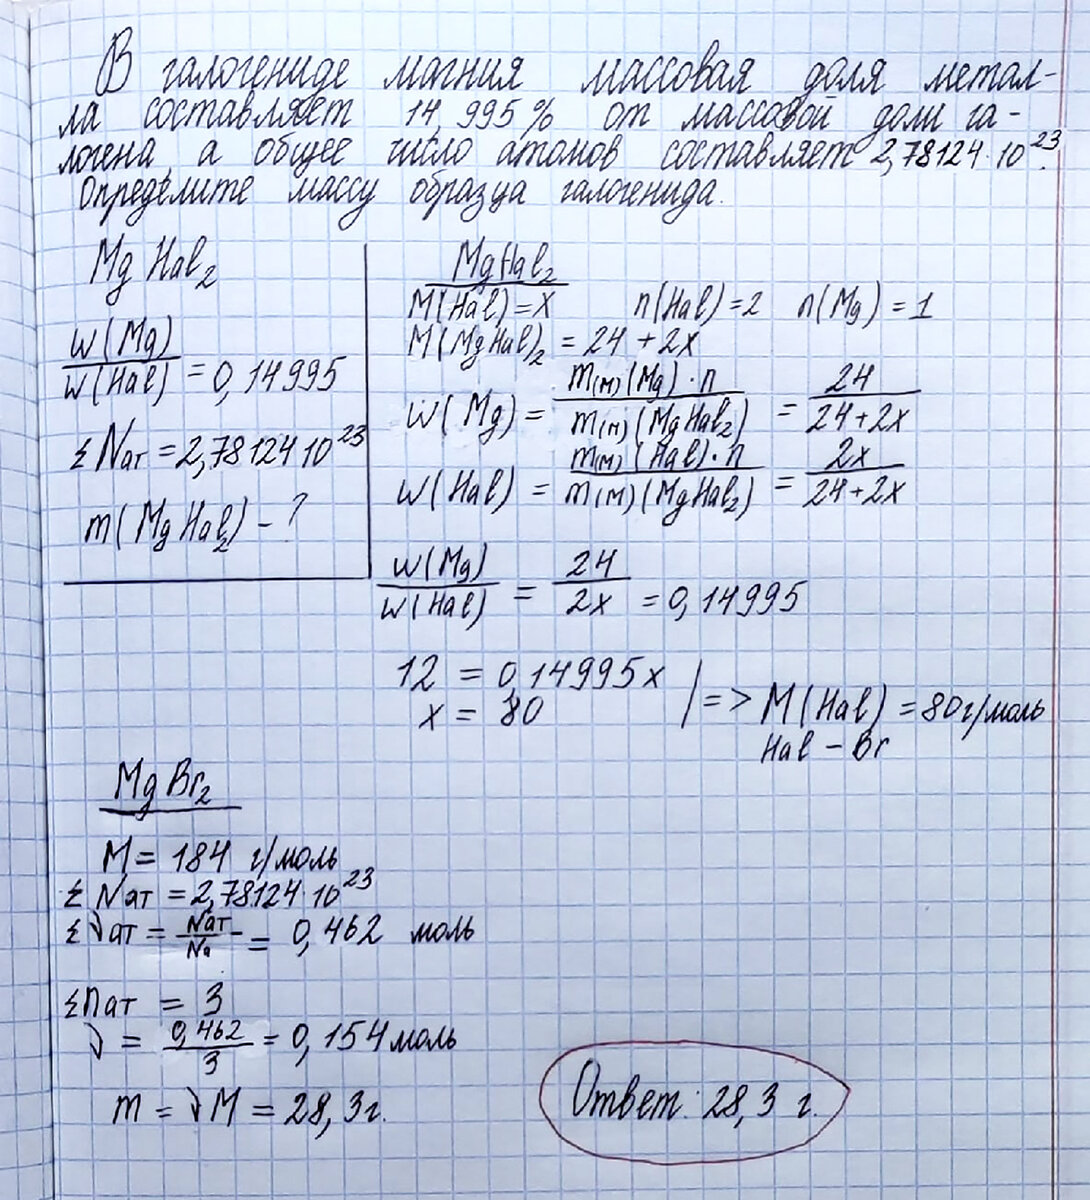 В галогениде магния массовая доля метал-
ла составляет 14,995% от массовой доли га-
логена, а общее число атомов составляет 2,78124·10²³.
Определите массу образца галогенида.
Mg Hal₂
w(Mg)/w(Hal) = 0,14995
Σ Nат = 2,78124·10²³
m(Mg Hal₂) - ?
MgHal₂
M(Hal) = x n(Hal) = 2 n(Mg) = 1
M(MgHal)₂ = 24 + 2x
w(Mg) = m(м)(Mg)·n / m(м)(MgHal₂) = 24 / 24+2x
w(Hal) = m(м)(Hal)·n / m(м)(MgHal₂) = 2x / 24+2x
w(Mg)/w(Hal) = 24/2x = 0,14995
12 = 0,14995x
x = 80 | => M(Hal) = 80г/моль
Hal - Br
MgBr₂
M = 184 г/моль
Σ Nат = 2,78124·10²³
Σ νат = Nат/Na = 0,462 моль
Σnат = 3
ν = 0,462/3 = 0,154 моль
m = νM = 28,3г.
Ответ: 28,3 г.